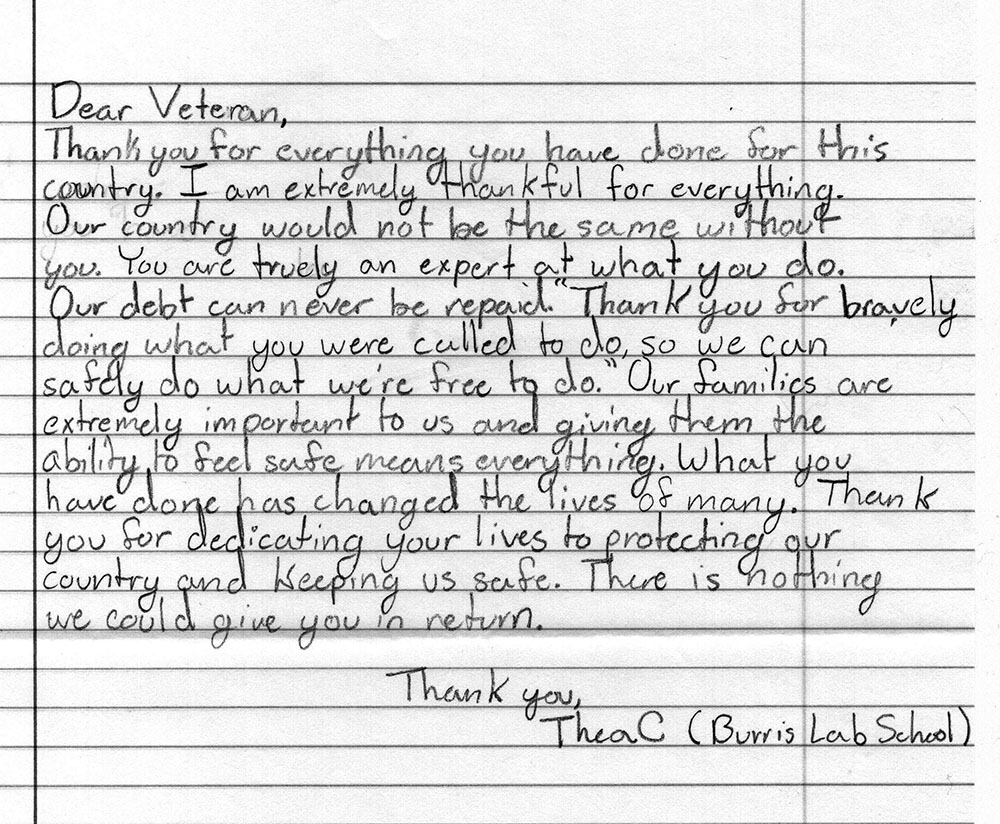 Dear Veteran,
Thank you for everything you have done for this
country. I am extremely thankful for everything.
Our country would not be the same without
you. You are truely an expert at what you do.
Our debt can never be repaid. "Thank you for bravely
doing what you were called to do, so we can
safely do what we're free to do." Our families are
extremely important to us and giving them the
ability to feel safe means everything. What you
have done has changed the lives of many. Thank
you for dedicating your lives to protecting our
country and keeping us safe. There is nothing
we could give you in return.
Thank you,
Thea C (Burris Lab School)